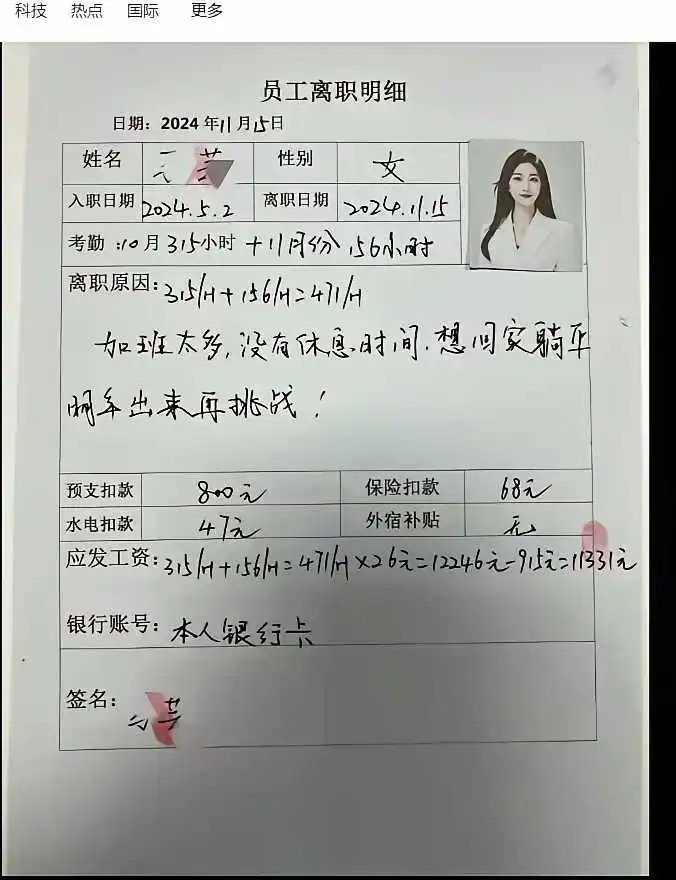 科技 热点 国际 更多
员工离职明细
日期：2024年11月15日
姓名 性别 女
入职日期 2024.5.2 离职日期 2024.11.15
考勤：10月315小时+11月份156小时
离职原因：315/H+156/H=471/H
加班太多，没有休息时间.想回家躺平
明年出来再挑战！
预支扣款 800元 保险扣款 68元
水电扣款 47元 外宿补贴 无
应发工资：315/H+156/H=471/H×26元=12246元-915元=11331元
银行账号：本人银行卡
签名：